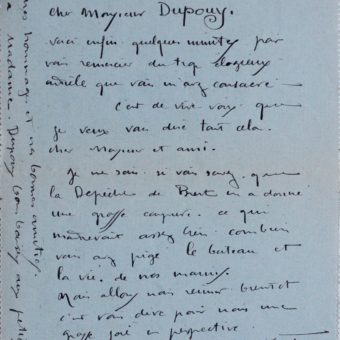 cher Monsieur Dupouy.
voici enfin quelques minutes pour
vous remercier du trop élogieux
article que vous m'avez consacré
c'est de vive voix que
je veux vous dire tout cela.
cher Monsieur et ami.
Je ne sais si vous savez que
la Dépêche de Brest en a donné
une grosse coupure. ce qui
m'a assez combien
vous avez pigé le bateau et
la vie de nos marins.
Mais allons nous revenir bientôt et
c'est vous dire pour nous une
grosse joie en perspective.
hommages et nos bonnes amitiés
a madame Dupouy bons baisers aux petits